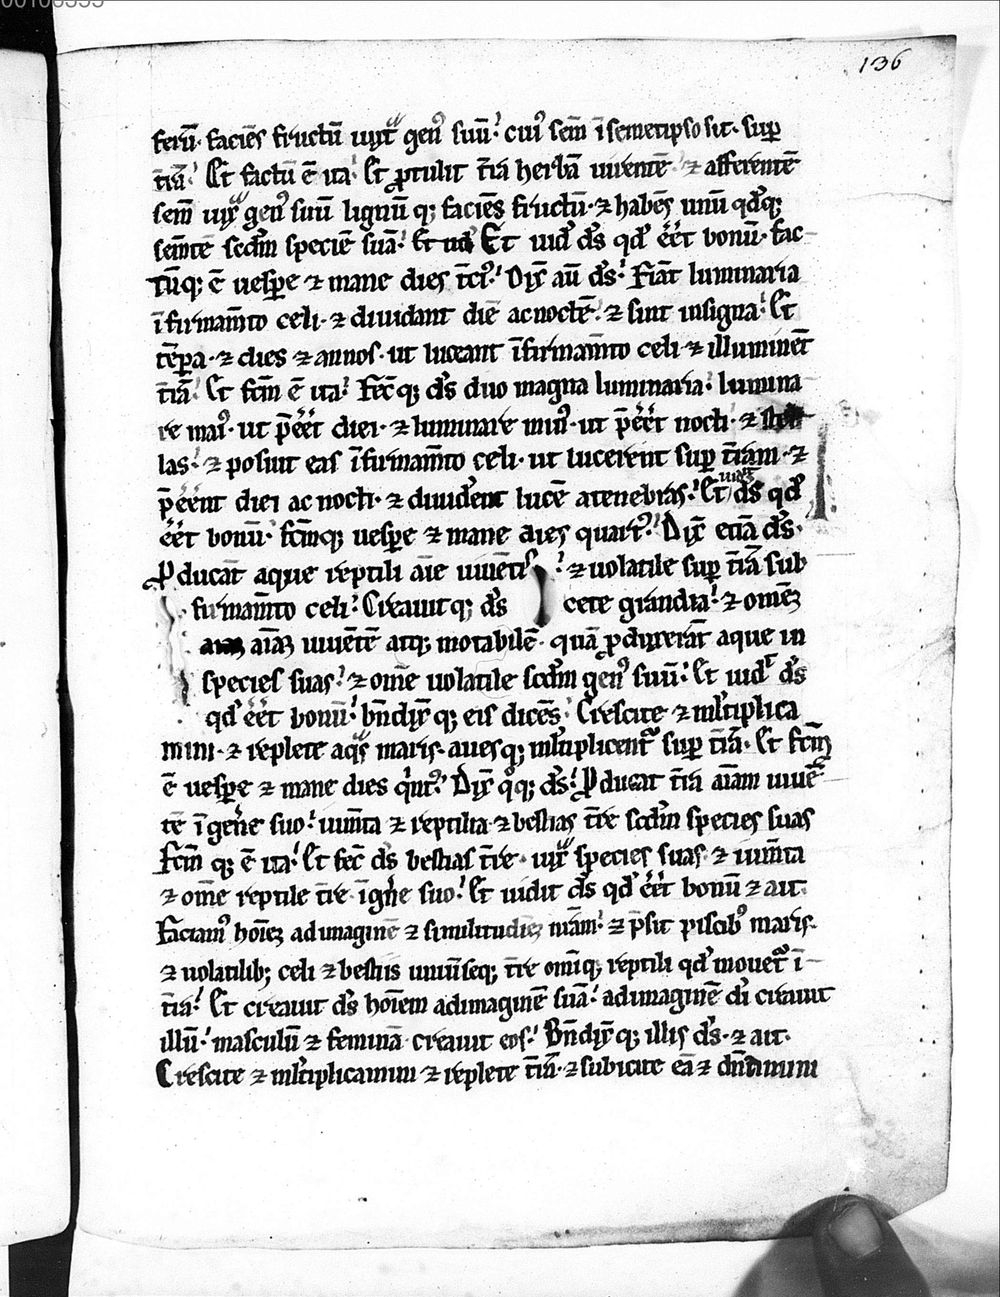 136
ferū· faciēs fructū iuxͭ genꝰ suū· cuiꝰ sem̄ ī semetipso sit· sup̱
t̄rā· Et factū ē ita· Et ꝓtulit t̄rā herbā uirentē ⁊ afferentē
sem̄ iux̄ genꝰ suū lignūq; faciēs fructū· ⁊ habēs unūqdq;
sem̄tē scdm̄ speciē suā· Et uid̛ d̄s qd̛ ēēt bonū· fac-
tūq; ē uesꝑe ⁊ mane dies t̄ciꝰ· Dix̄ aū d̄s· Fiāt luminaria
ī firmam̄to celi· ⁊ diuidant diē ac noctē· ⁊ sint in signa· Et
tēpa· ⁊ dies ⁊ annos· ut luceant ī firmam̄to celi ⁊ illuminēt
t̄rā· Et fcm̄ ē ita· Fec̄q; d̄s duo magna luminaria· lumina-
re maiꝰ· ut p̄ēēt diei· ⁊ luminare minꝰ· ut p̄ēēt nocti· ⁊ stel-
las· ⁊ posuit eas ī firmam̄to celi· ut lucerent sup̱ t̄ram· ⁊
p̄ēēnt diei ac nocti· ⁊ diuid̛ent lucē a tenebras· Et uidit d̄s qd̛
ēēt bonū· fcm̄q; uesꝑe ⁊ mane dies quartꝰ· Dix̄ etiā d̄s·
Ꝓducāt aque reptili āie uiuētis· ⁊ uolatile sup̱ t̄rā sub
firmam̄to celi· Creauitq; d̄s cete grandia· ⁊ omēꝫ
aīaꝫ uiuētē atq; motabilē· quā ꝓduxerāt aque in
species suas· ⁊ om̄e uolatile scdm̄ genꝰ suū· Et uid̛ d̄s
qd̛ ēēt bonū· bn̄dix̄q; eis dicēs· Crescite ⁊ ml̛tiplica
mini· ⁊ replete aq̄s maris· auesq; ml̛tiplicent̛ sup̱ t̄rā· Et fcm̄
ē uesꝑe ⁊ mane dies qͥntꝰ· Dix̄ qͦq; d̄s· Ꝓducat t̄rā aīam uiuē-
tē ī gen̛e suo· ium̄ta ⁊ reptilia· ⁊ bestias t̄re scdm̄ species suas
Fcm̄q; ē ita· Et fec̄ d̄s bestias t̄re· iuxͭ species suas ⁊ ium̄ta
⁊ om̄e reptile t̄re ī gn̛e suo· Et uidit d̄s qd̛ ēēt bonū ⁊ ait·
Faciamꝰ hoīeꝫ ad imaginē ⁊ similitudīeꝫ nr̄am· ⁊ p̄sit piscibꝰ maris·
⁊ uolatilib; celi ⁊ bestiis uniūseq; t̄re om̄iq; reptili qd̛ mouet̛ ī
t̄rā· Et creauit d̄s hoīem ad imaginē suā· ad imaginē di̛ creauit
illū· masculū ⁊ feminā creauit eos· Bn̄dix̄q; illis d̄s· ⁊ ait·
Crescite ⁊ ml̛tiplicamini ⁊ replete t̄rā· ⁊ subicite eā ⁊ dn̄amini